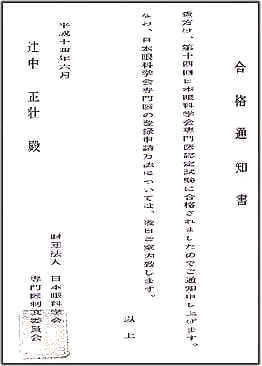 合格通知書
貴方は、第十四回日本眼科学会専門医認定試験に合格されましたのでご通知申し上げます。
なお、日本眼科学会専門医の登録申請方法については、後日ご案内致します。
以上
平成十四年六月
辻中 正壮 殿
財団法人 日本眼科学会
専門医制度委員会